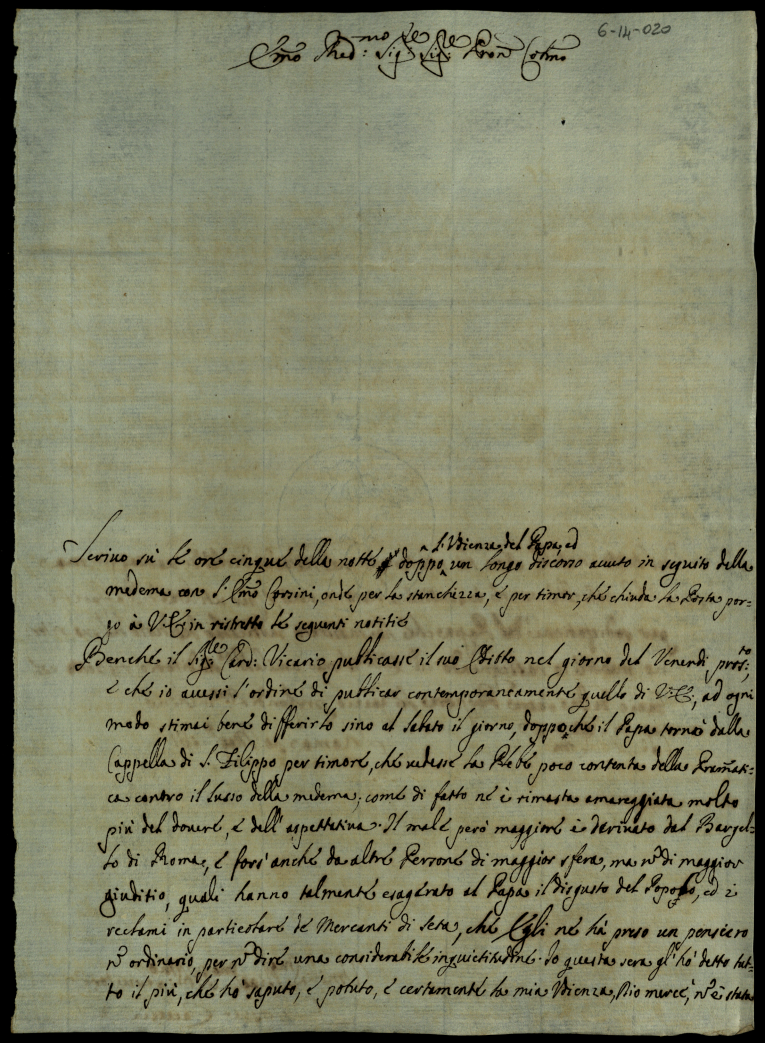 6-14-020
Em̃o Red:mo Sig:re Sig:re Prõn Col̃mo
l'Udienza del Papa, ed
Scrivo sù le ore cinque della notte doppo un longo discorso avuto in seguito della
medema con S. Em̃o Corsini, onde per la stanchezza, e per timor, che chiuda la Posta por-
go à V.E. in ristretto le seguenti notitie
Benche il Sig:re Card: Vicario publicasse il suo Editto nel giorno del Venerdi pross:to,
e che io avessi l'ordine di publicar contemporaneamente quello di V.E., ad ogni
modo stimai bene differirlo sino al Sabato il giorno, doppo, che il Papa tornò dalla
Cappella di S. Filippo, per timore, che vedesse la Plebe poco contenta della Pram̃ati-
ca contro il lusso della medema; come di fatto ne è rimasta amareggiata molto
più del dovere, e dell'aspettativa. Il male però maggiore è derivato dal Bargel-
lo di Roma, e fors'anche da altre Persone di maggior sfera, ma nõ di maggior
giuditio, quali hanno talmente esagerato al Papa il disgusto del Popolo, ed i
reclami in particolare de Mercanti di seta, che Egli ne hà preso un pensiero
nõ ordinario, per nõ dire una considerabile inquietitudine. Io questa sera gl'hò detto tut-
to il più, che hò saputo, e potuto, e certamente la mia Udienza, Dio mercè, nõ è stata